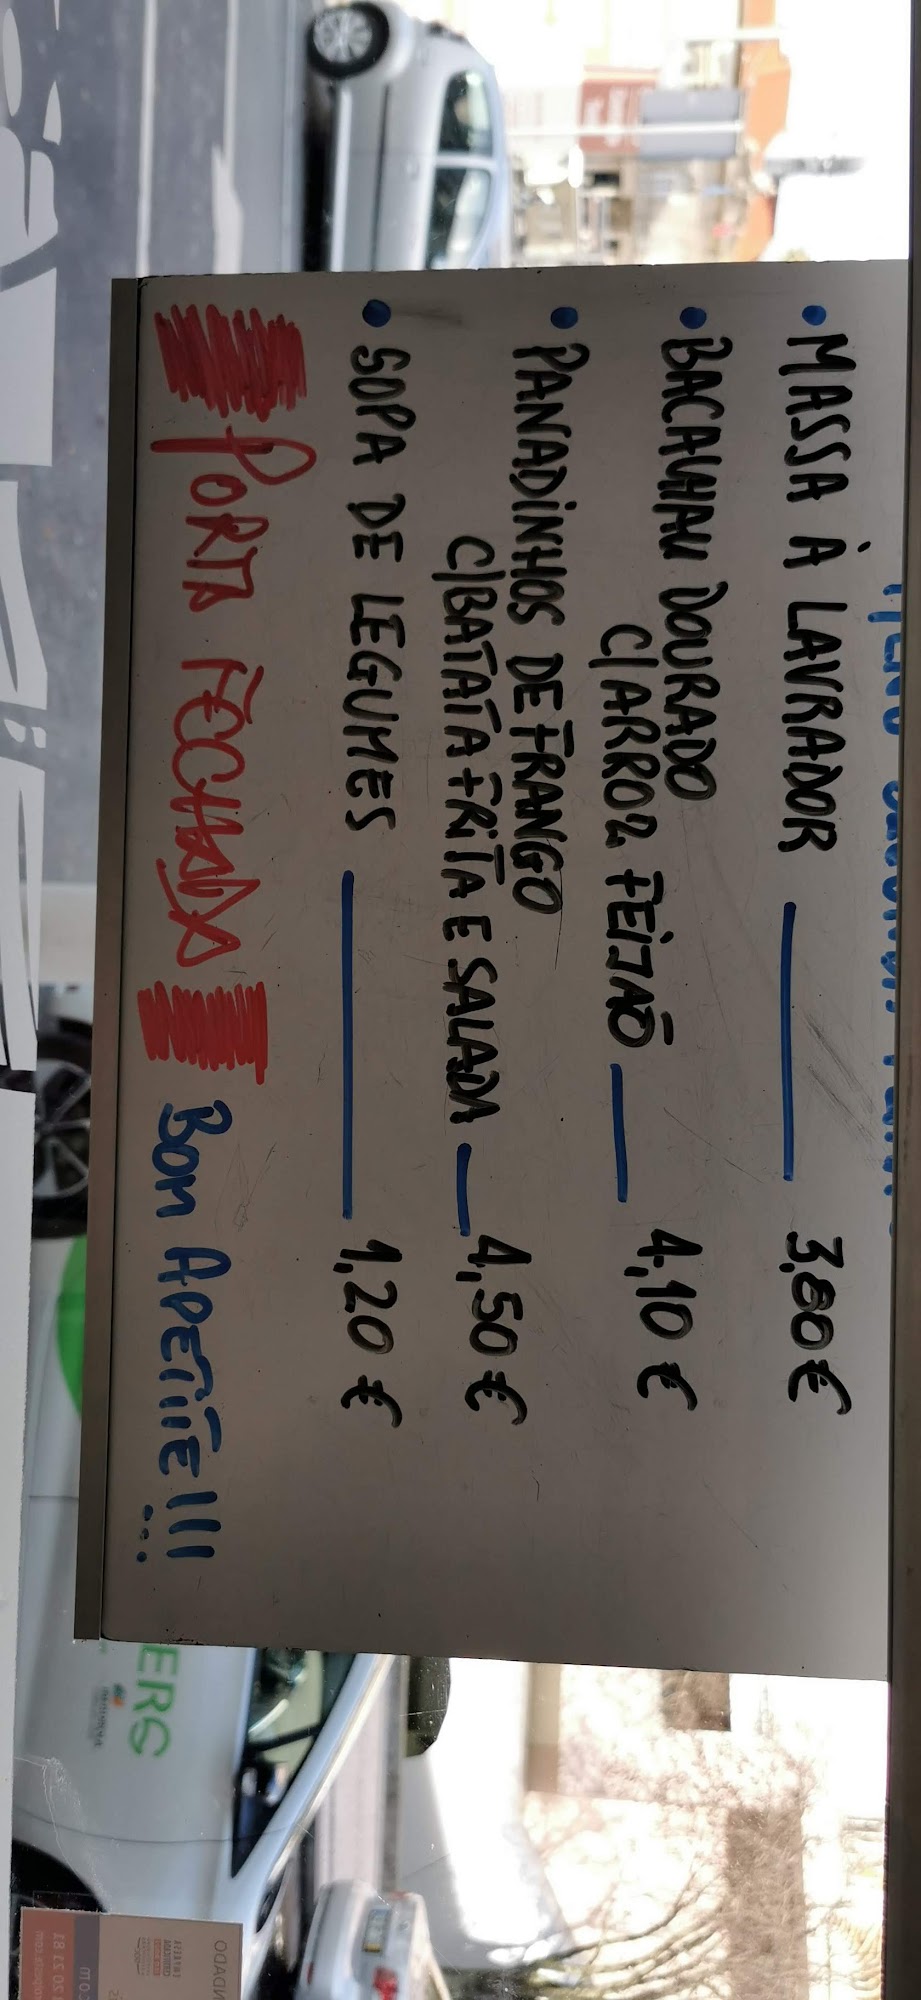 • MASSA À LAVRADOR — 3,80 €
• BACALHAU DOURADO
C/ARROZ FEIJÃO — 4,10 €
• PANADINHOS DE FRANGO
C/BATATA FRITA E SALADA — 4,50 €
• SOPA DE LEGUMES — 1,20 €
PORTA FECHADA BOM APETITE!!!
ERS